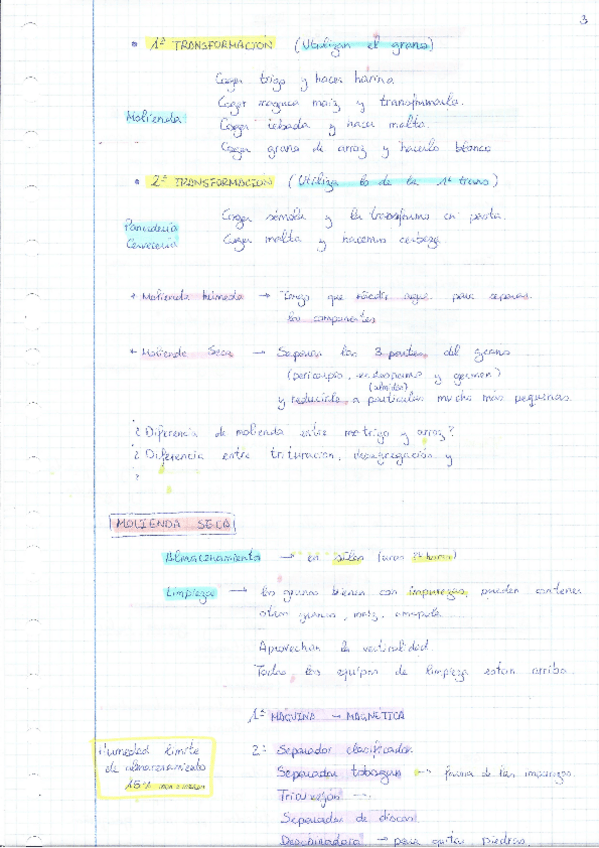 3
• 1ª TRANSFORMACIÓN (Utilizan el grano)
Coger trigo y hacer harina.
Coger maiz y transformarla.
Molienda
Coger cebada y hacer malta.
Coger grano de arroz y hacerlo blanco
• 2ª TRANSFORMACIÓN (Utiliza lo de la 1ª trans)
Coger sémola y la transformo en pasta.
Panadería
Cervecería
Coger malta y hacemos cerbeza.
Molienda húmeda → Tengo que añadir agua para separar
los componentes
Molienda Seca → Separar las 3 partes del grano
(pericarpio, endospermo y germen)
(almidón)
y reducirlo a particulas mucho más pequeñas.
¿Diferencia de molienda entre trigo y arroz?
¿Diferencia entre trituración, desagregación y
?
MOLIENDA SECA
Almacenamiento → en silos (unas horas)
Limpieza → los granos bienen con impurezas, pueden contener
otros granos, maiz, amapola
Aprovechan la verticalidad
Todos los equipos de limpieza estan arriba.
1ª MÁQUINA → MAGNÉTICA
Humedad límite
de almacenamiento
15%
2ª Separador clasificador.
Separador tobogan → forma de las impurezas
Triavejón →
Separador de discos.
Deschinadora → para quitar piedras.